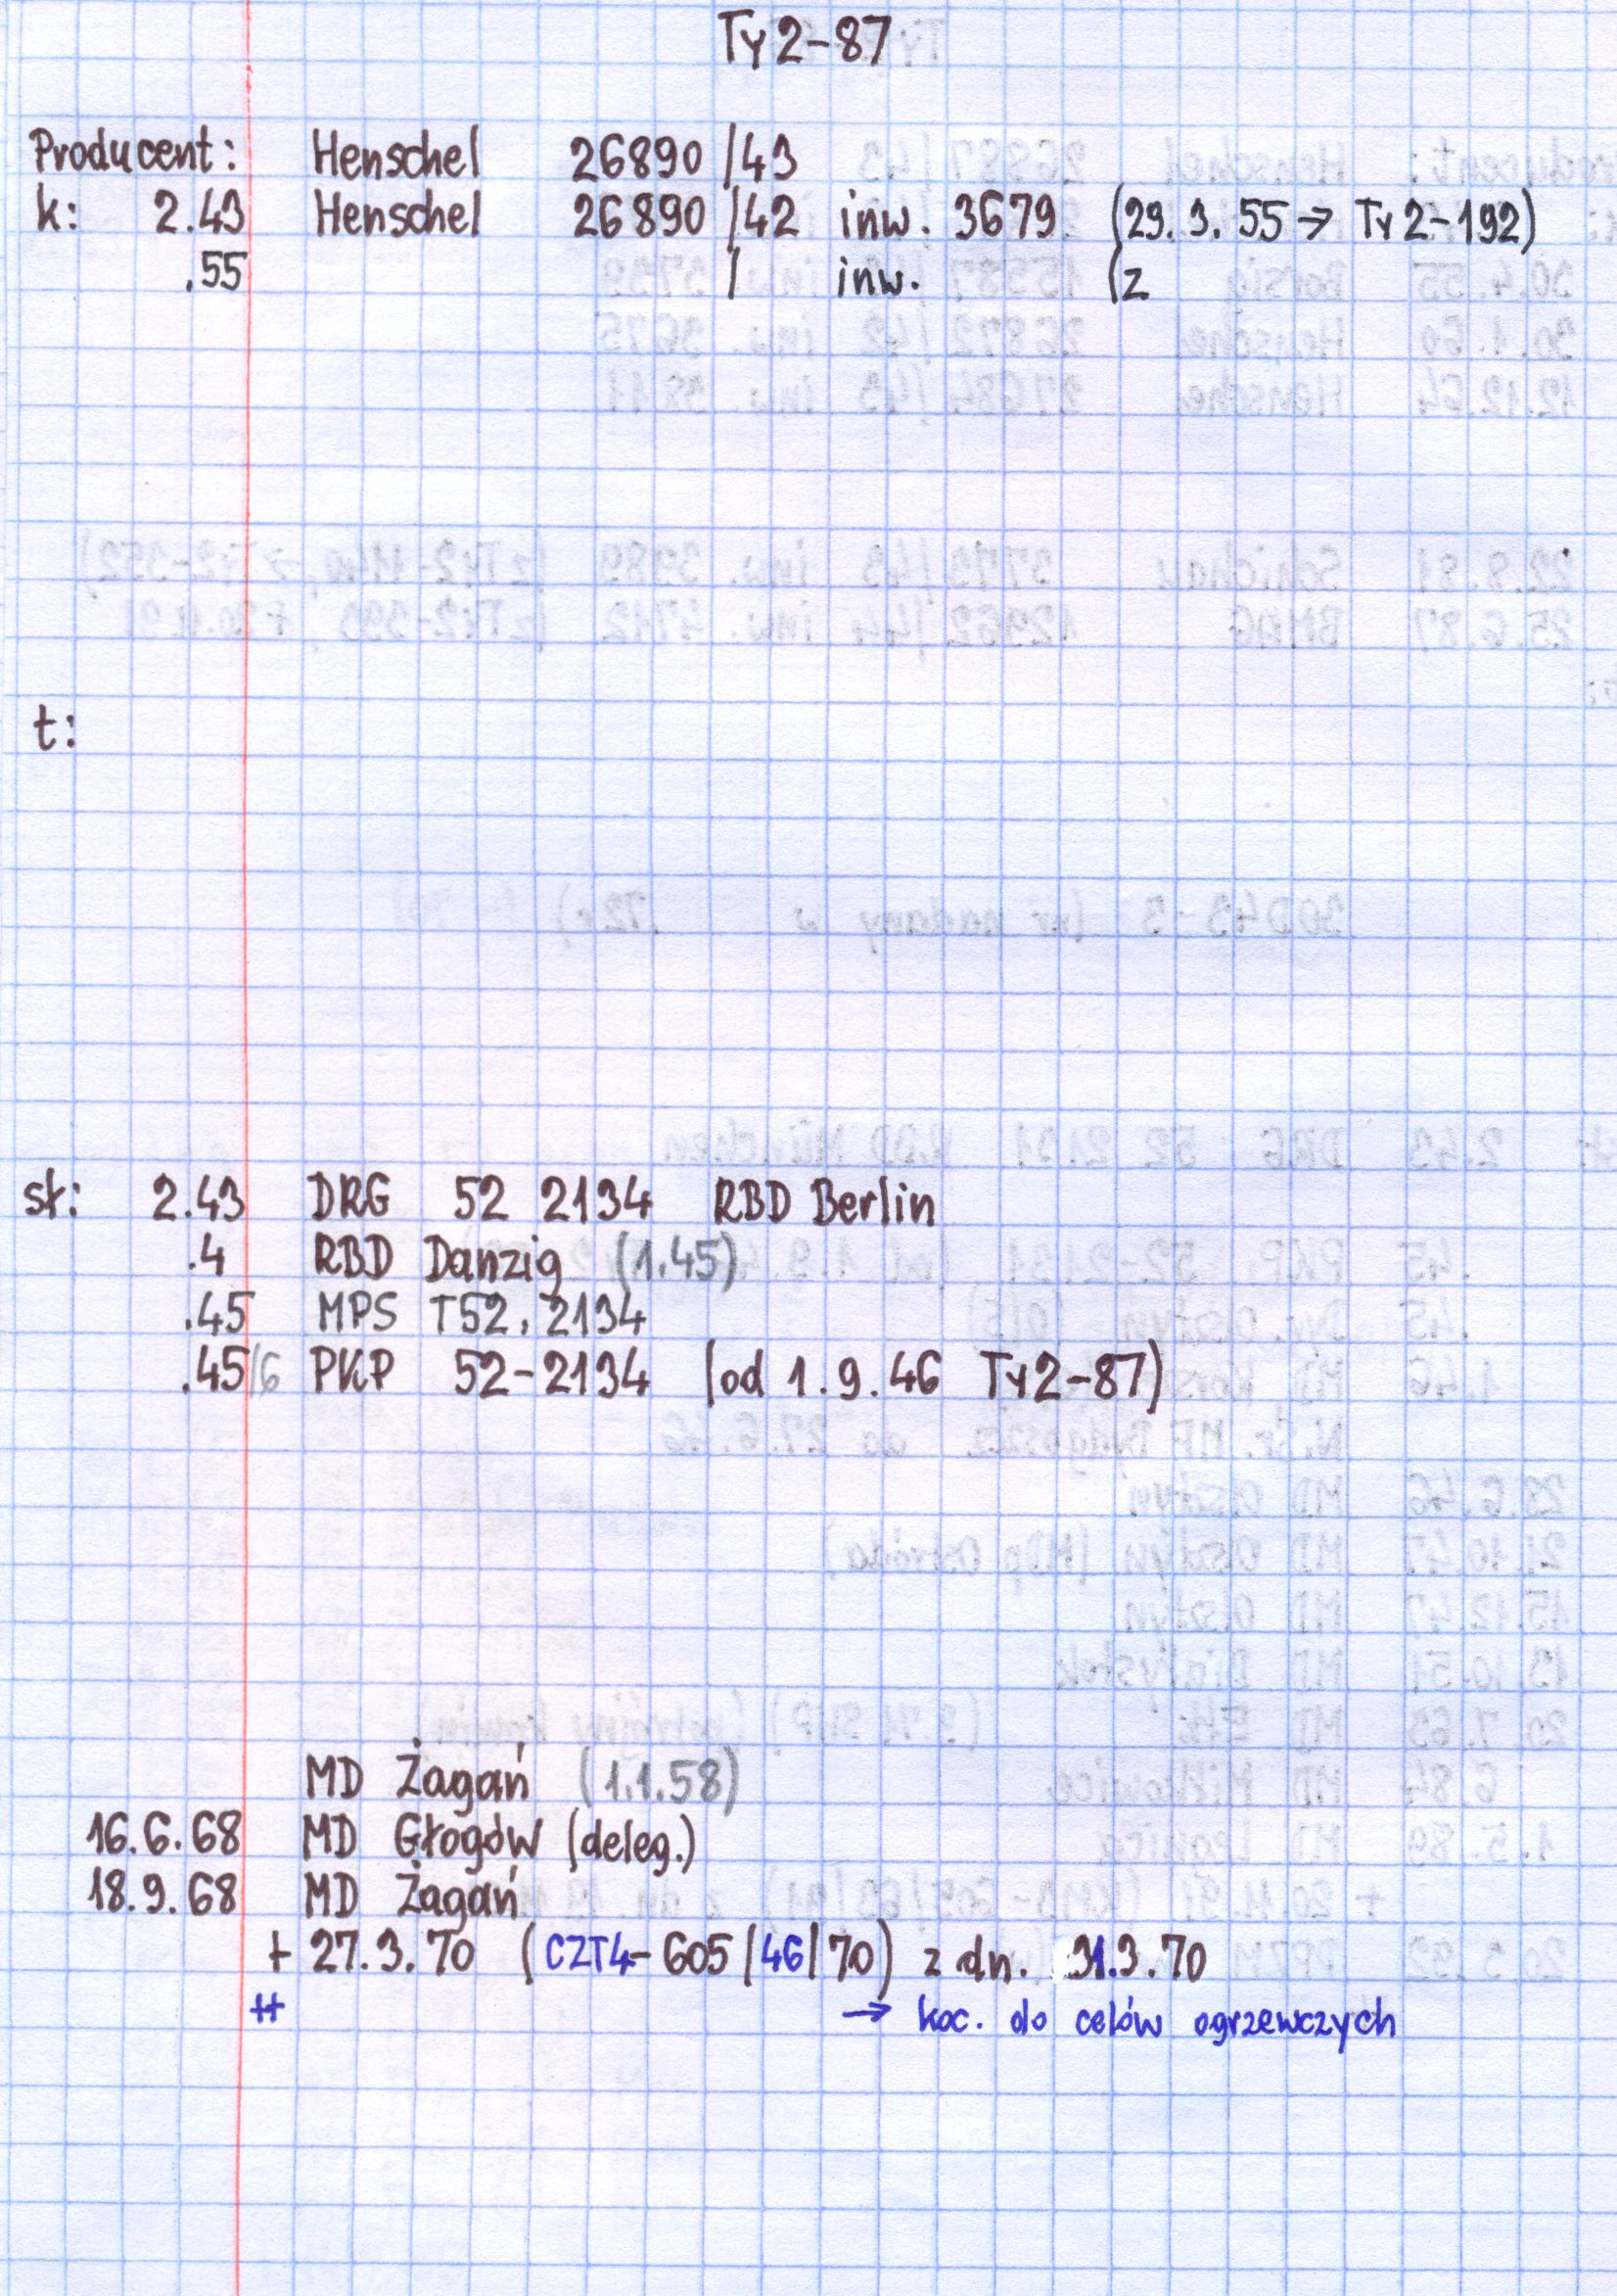 Ty2-87
Producent: Henschel 26890/43
k: 2.43 Henschel 26890/42 inw. 3679 (29.3.55 → Ty2-192)
.55 / inw. (z
t:
st: 2.43 DRG 52 2134 RBD Berlin
.4 RBD Danzig (1.45)
.45 MPS T52.2134
.45/6 PKP 52-2134 (od 1.9.46 Ty2-87)
MD Żagań (1.1.58)
16.6.68 MD Głogów (deleg.)
18.9.68 MD Żagań
+ 27.3.70 (CZT4-605/46/70) z dn. 31.3.70
++ → koc. do celów ogrzewczych